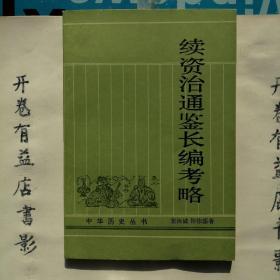 续资治通鉴长编考略
裴汝诚 许沛藻著
中华历史丛书
开卷有益店書影
开卷有益店書影